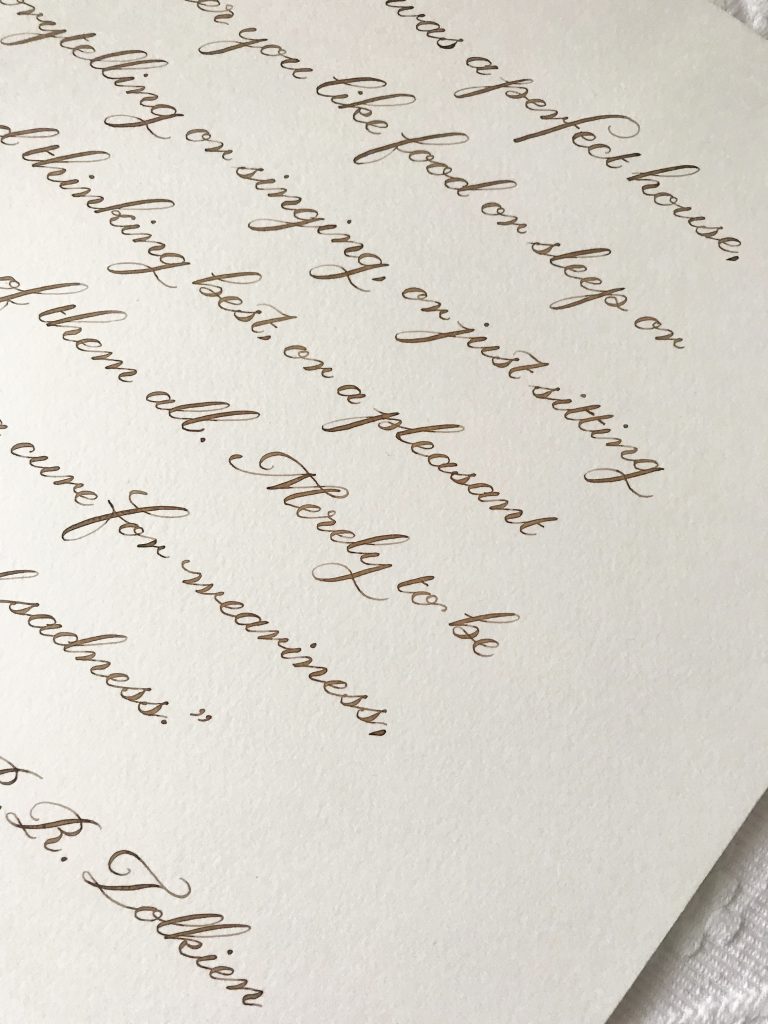 was a perfect house,
er you like food or sleep or
orytelling or singing, or just sitting
d thinking best, or a pleasant
of them all. Merely to be
a cure for weariness,
d sadness.”
R. R. Tolkien